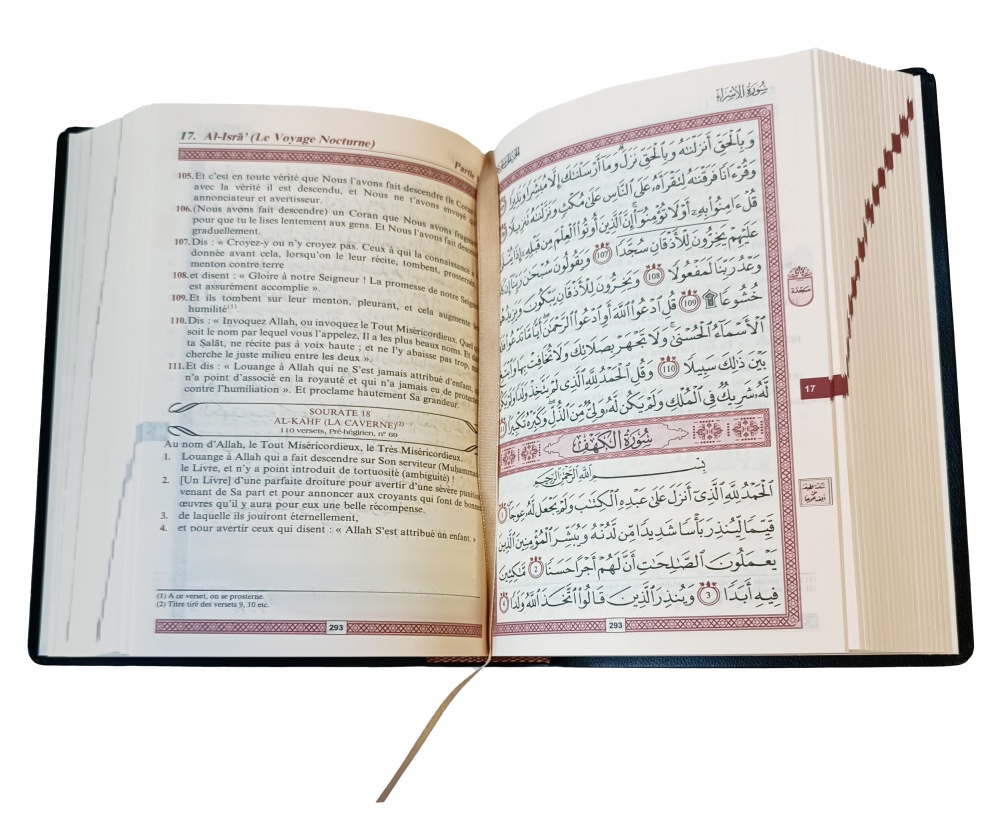 17. Al-Isrā' (Le Voyage Nocturne)
Partie
105. Et c'est en toute vérité que Nous l'avons fait descendre (le Coran
avec la vérité il est descendu, et Nous ne t'avons envoyé
annonciateur et avertisseur.
106. (Nous avons fait descendre) un Coran que Nous avons fragm
pour que tu le lises lentement aux gens. Et Nous l'avons fait desce
graduellement.
107. Dis : « Croyez-y ou n'y croyez pas. Ceux à qui la connaissance a
donnée avant cela, lorsqu'on le leur récite, tombent, prosternés
menton contre terre
108. et disent : « Gloire à notre Seigneur ! La promesse de notre Seigne
est assurément accomplie ».
109. Et ils tombent sur leur menton, pleurant, et cela augmente
humilité(1).
110. Dis : « Invoquez Allah, ou invoquez le Tout Miséricordieux. Quel
soit le nom par lequel vous l'appelez, Il a les plus beaux noms. Et d
ta Ṣalāt, ne récite pas à voix haute ; et ne l'y abaisse pas trop,
cherche le juste milieu entre les deux ».
111. Et dis : « Louange à Allah qui ne S'est jamais attribué d'enfant,
n'a point d'associé en la royauté et qui n'a jamais eu de protecte
contre l'humiliation ». Et proclame hautement Sa grandeur.
SOURATE 18
AL-KAHF (LA CAVERNE)(2)
110 versets, Pré-hégirien, n° 69
Au nom d'Allah, le Tout Miséricordieux, le Très Miséricordieux.
1. Louange à Allah qui a fait descendre sur Son serviteur (Muḥamma
le Livre, et n'y a point introduit de tortuosité (ambiguïté) !
2. [Un Livre] d'une parfaite droiture pour avertir d'une sévère punition
venant de Sa part et pour annoncer aux croyants qui font de bonne
œuvres qu'il y aura pour eux une belle récompense,
3. de laquelle ils jouiront éternellement,
4. et pour avertir ceux qui disent : « Allah S'est attribué un enfant. »
(1) A ce verset, on se prosterne.
(2) Titre tiré des versets 9, 10 etc.
293
سُورَةُ الإِسْرَاءِ
وَبِٱلْحَقِّ أَنزَلْنَٰهُ وَبِٱلْحَقِّ نَزَلَ ۗ وَمَآ أَرْسَلْنَٰكَ إِلَّا مُبَشِّرًا وَنَذِيرًا
وَقُرْءَانًا فَرَقْنَٰهُ لِتَقْرَأَهُۥ عَلَى ٱلنَّاسِ عَلَىٰ مُكْثٍ وَنَزَّلْنَٰهُ تَنزِيلًا
قُلْ ءَامِنُوا۟ بِهِۦٓ أَوْ لَا تُؤْمِنُوٓا۟ ۚ إِنَّ ٱلَّذِينَ أُوتُوا۟ ٱلْعِلْمَ مِن قَبْلِهِۦٓ إِذَا يُتْلَىٰ
عَلَيْهِمْ يَخِرُّونَ لِلْأَذْقَانِ سُجَّدًا 107 وَيَقُولُونَ سُبْحَٰنَ رَبِّنَآ إِن
وَعْدُ رَبِّنَا لَمَفْعُولًا 108 وَيَخِرُّونَ لِلْأَذْقَانِ يَبْكُونَ وَيَزِيدُهُمْ
خُشُوعًا ۩ 109 قُلِ ٱدْعُوا۟ ٱللَّهَ أَوِ ٱدْعُوا۟ ٱلرَّحْمَٰنَ ۖ أَيًّا مَّا تَدْعُوا۟ فَلَهُ
ٱلْأَسْمَآءُ ٱلْحُسْنَىٰ ۚ وَلَا تَجْهَرْ بِصَلَاتِكَ وَلَا تُخَافِتْ بِهَا وَٱبْتَغِ
بَيْنَ ذَٰلِكَ سَبِيلًا 110 وَقُلِ ٱلْحَمْدُ لِلَّهِ ٱلَّذِى لَمْ يَتَّخِذْ وَلَدًا وَلَمْ يَكُن
لَّهُۥ شَرِيكٌ فِى ٱلْمُلْكِ وَلَمْ يَكُن لَّهُۥ وَلِىٌّ مِّنَ ٱلذُّلِّ ۖ وَكَبِّرْهُ تَكْبِيرًۢا
سُورَةُ الكَهْفِ
بِسْمِ ٱللَّهِ ٱلرَّحْمَٰنِ ٱلرَّحِيمِ
ٱلْحَمْدُ لِلَّهِ ٱلَّذِىٓ أَنزَلَ عَلَىٰ عَبْدِهِ ٱلْكِتَٰبَ وَلَمْ يَجْعَل لَّهُۥ عِوَجَا 1
قَيِّمًا لِّيُنذِرَ بَأْسًا شَدِيدًا مِّن لَّدُنْهُ وَيُبَشِّرَ ٱلْمُؤْمِنِينَ ٱلَّذِينَ
يَعْمَلُونَ ٱلصَّٰلِحَٰتِ أَنَّ لَهُمْ أَجْرًا حَسَنًا 2 مَّٰكِثِينَ
فِيهِ أَبَدًا 3 وَيُنذِرَ ٱلَّذِينَ قَالُوا۟ ٱتَّخَذَ ٱللَّهُ وَلَدًا 4
293
سَجْدَة
17